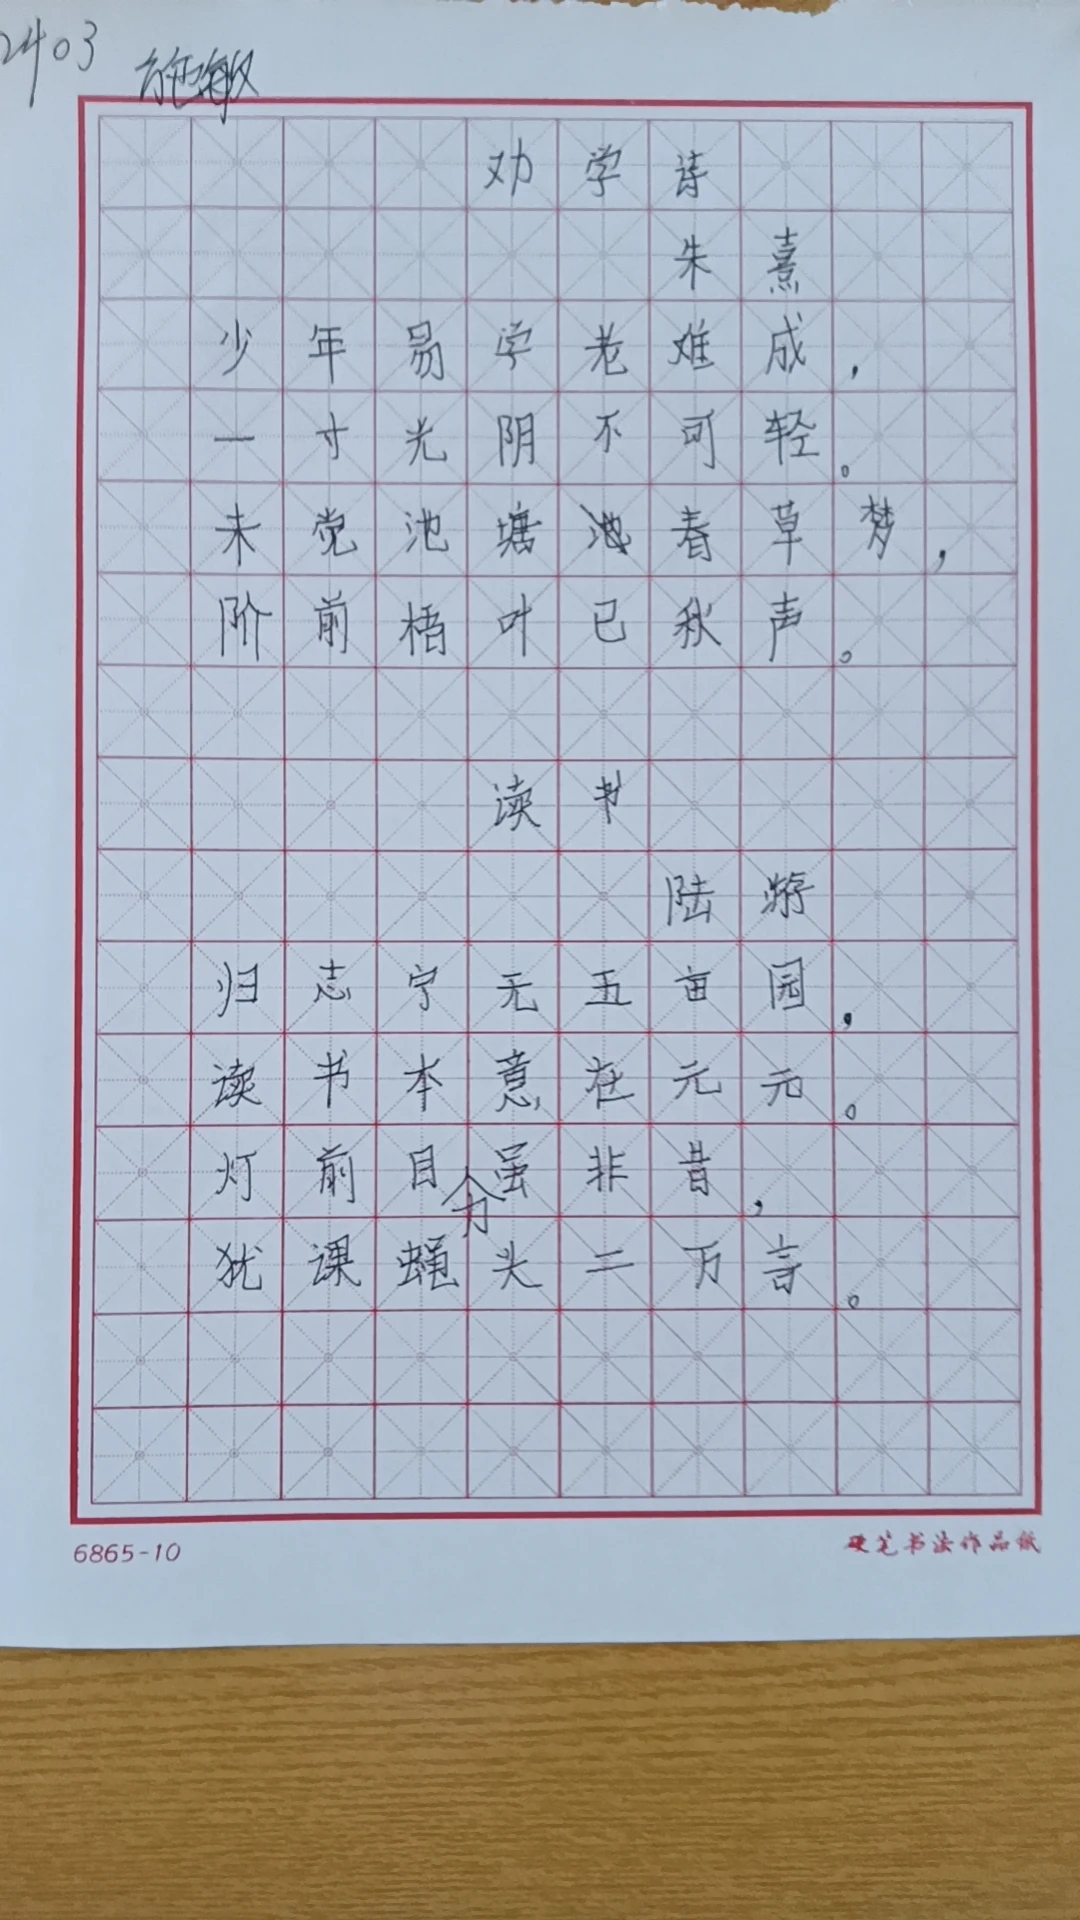 2403 施敏
劝学诗
朱熹
少年易学老难成，
一寸光阴不可轻。
未觉池塘春草梦，
阶前梧叶已秋声。
读书
陆游
归志宁无五亩园，
读书本意在元元。
灯前目力虽非昔，
犹课蝇头二万言。
6865-10
硬笔书法作品纸